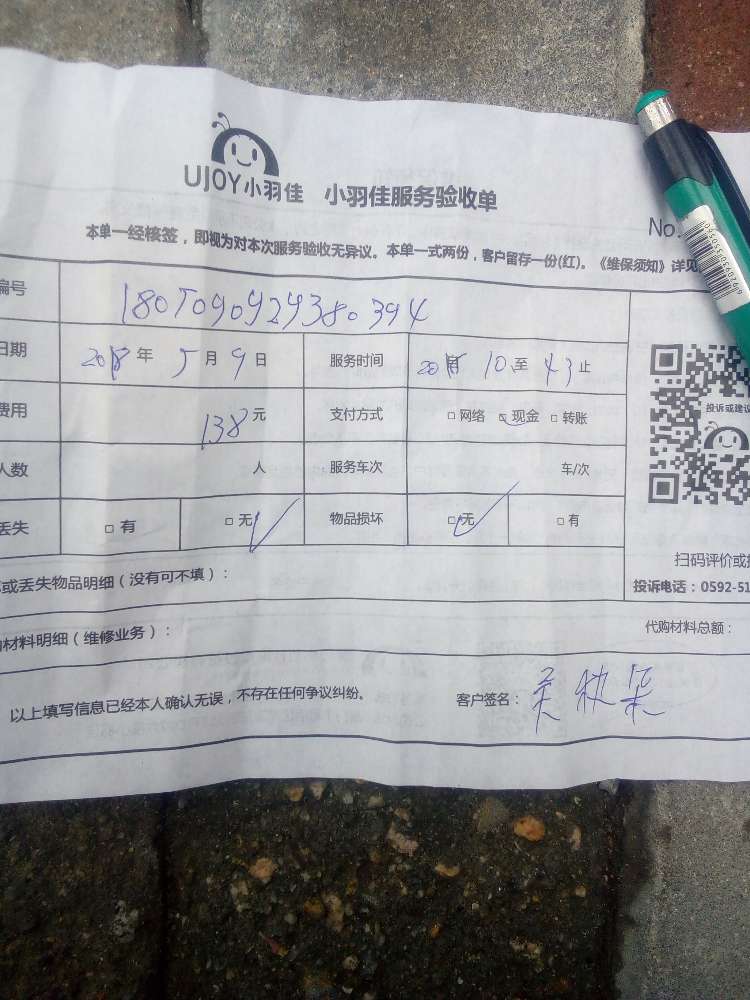 UJOY小羽佳 小羽佳服务验收单
No.
本单一经核签，即视为对本次服务验收无异议。本单一式两份，客户留存一份(红)。《维保须知》详见
编号 1805090929380394
日期 2018年5月9日 服务时间 10至43止
费用 138元 支付方式 □网络 □现金 □转账
人数 人 服务车次 车/次
丢失 □有 □无 物品损坏 □无 □有
投诉或建议
扫码评价或
或丢失物品明细（没有可不填）：
投诉电话：0592-51
材料明细（维修业务）： 代购材料总额：
以上填写信息已经本人确认无误，不存在任何争议纠纷。 客户签名：